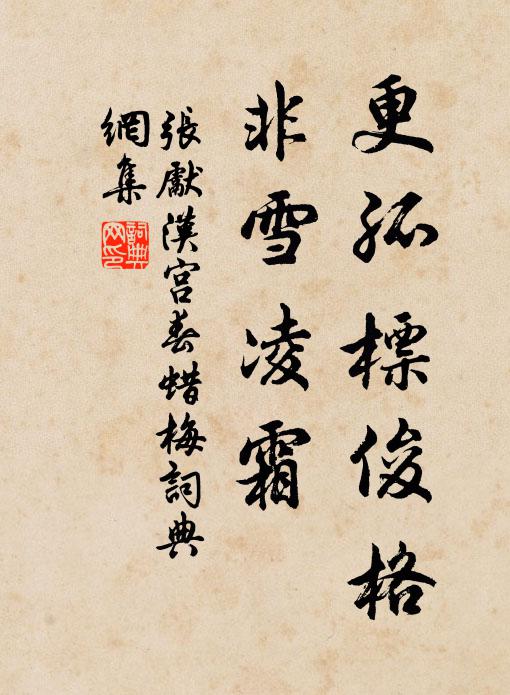 更孤標俊格
非雪凌霜
張獻漢宮春蜡梅詞典
網集
詞典
网印